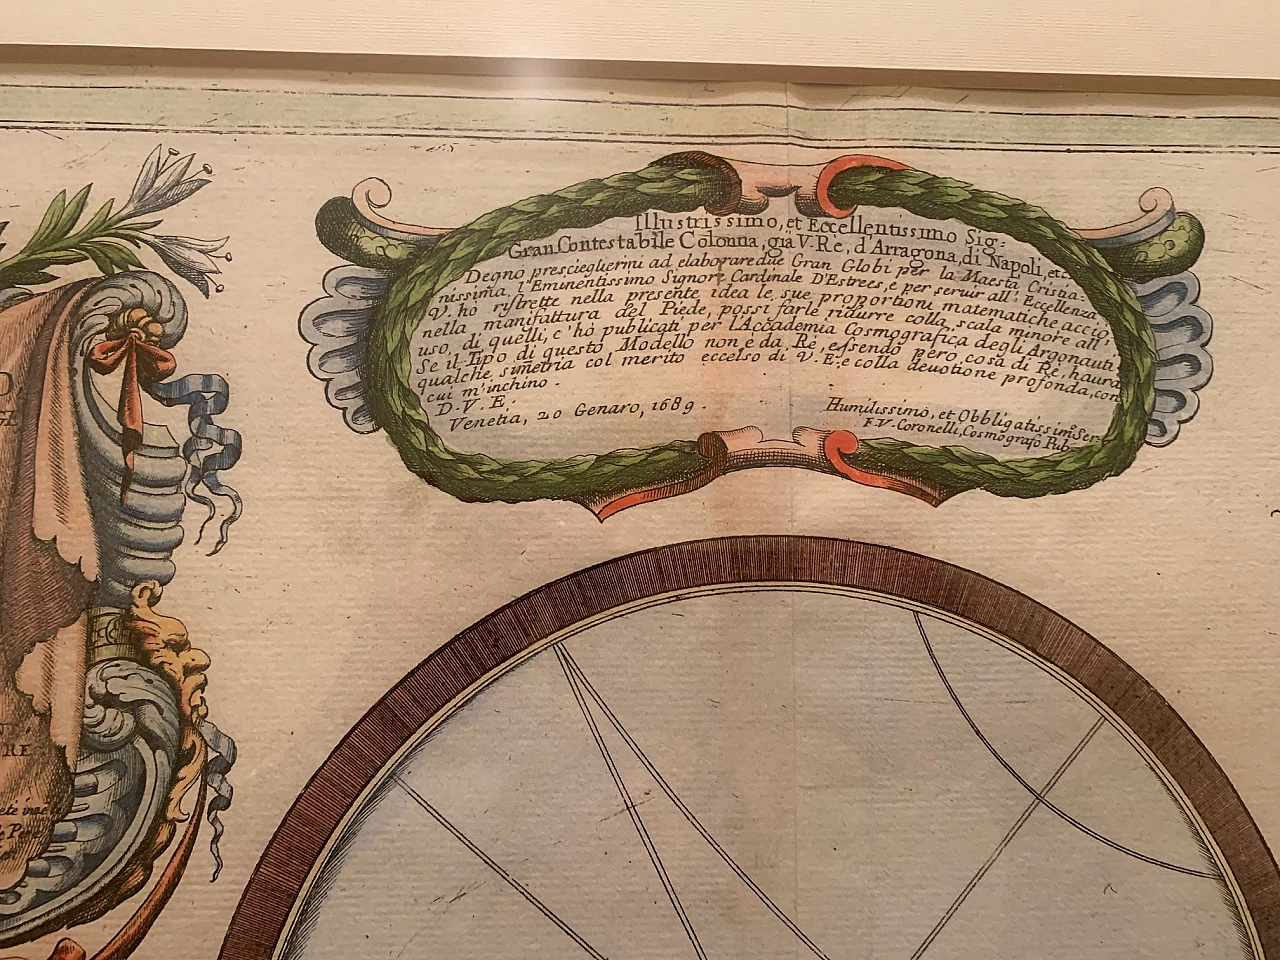 Illustrissimo, et Eccellentissimo Sig:
Gran Contestabile Colonna, gia V. Re, d'Arragona, di Napoli, etc
Degnò presciegliermi ad elaborare due Gran Globi per la Maestà Cristia-
nissima l'Eminentissimo Signore Cardinale D'Estrees, e per seruir all' Eccellenza
V. hò ristrette nella presente idea le sue proportioni matematiche acciò
nella manifattura del Piede, possi farle ridurre colla scala minore all'
uso, di quelli, c'hò publicati per l'Accademia Cosmografica degli Argonauti
Se il Tipo di questo Modello non è da Rè, essendo però cosa di Rè, haurà
qualche simetria col merito eccelso di V. E; e colla deuotione profonda, con
cui m'inchino.
D. V. E.
Venetia, 20 Genaro, 1689.
Humilissimo, et Obbligatissimo Ser:
F. V. Coronelli, Cosmografo Pub
RE